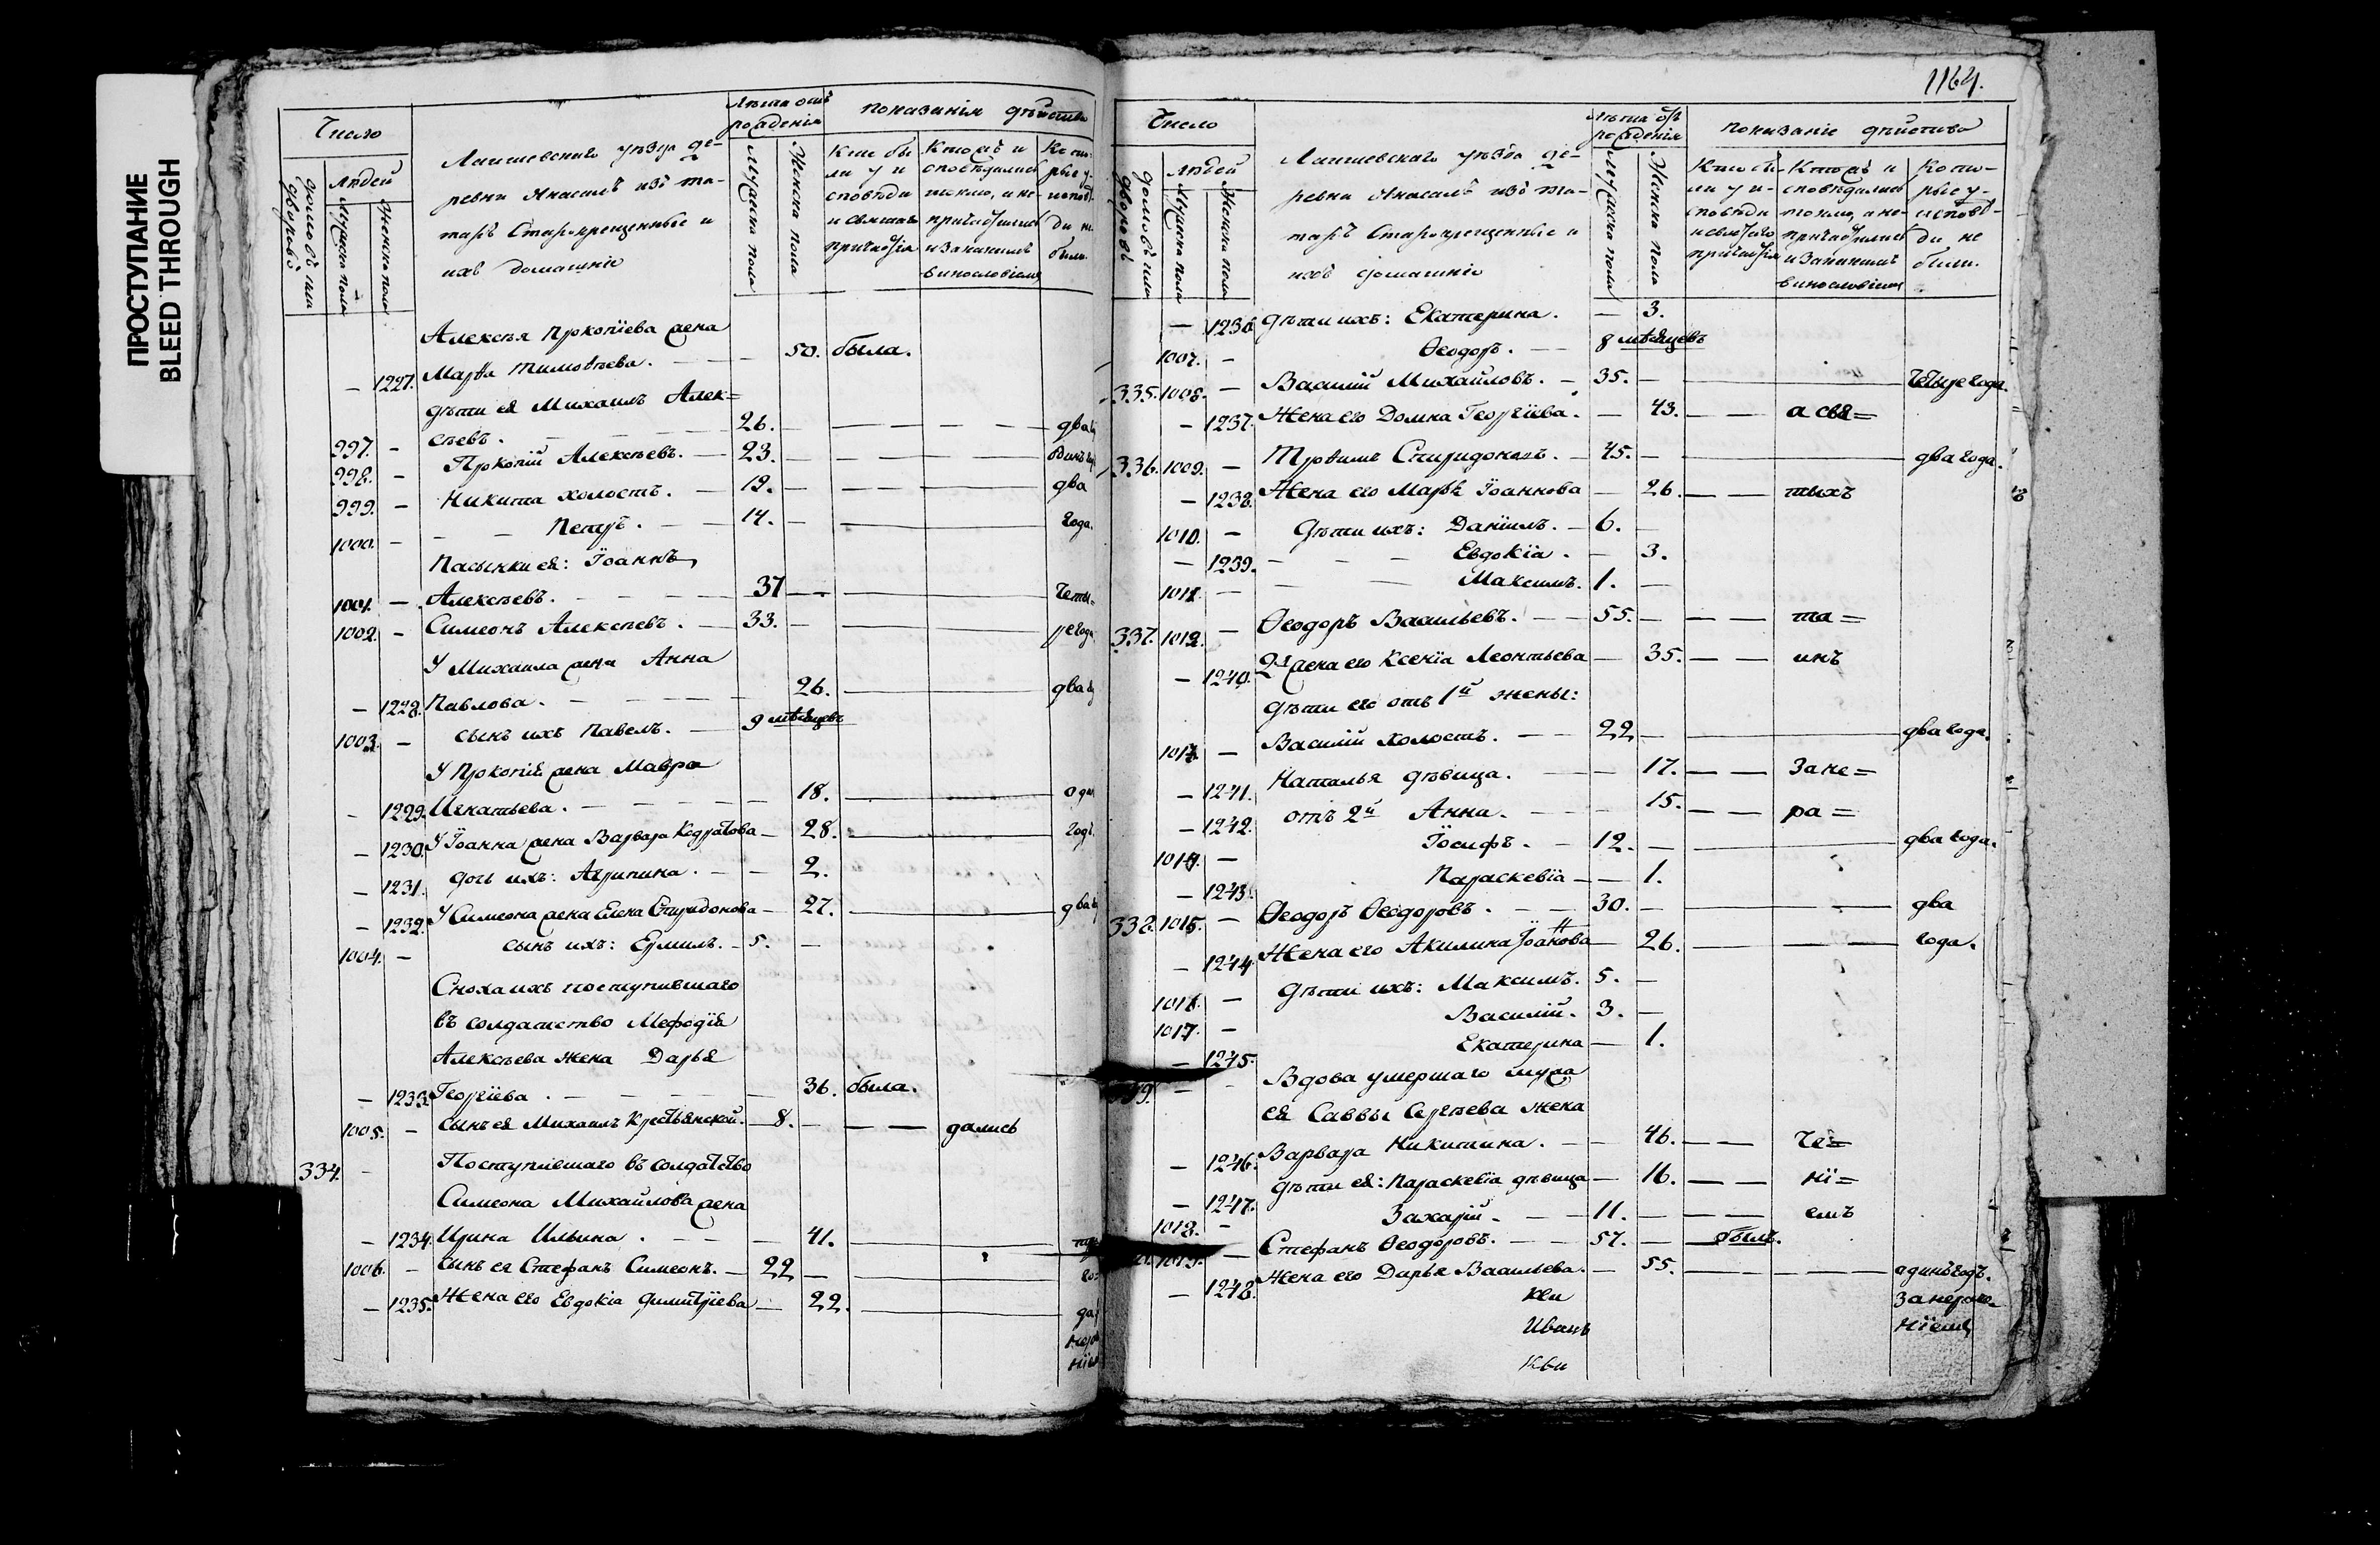 ПРОСТУПАНИЕ
BLEED THROUGH
Число
Людей
домовъ или дворовъ
Мужска пола
Женска пола
Лаишевскаго уѣзда де-
ревни Янасалъ изъ та-
таръ Старокрещенные и
ихъ домашніе
Лѣта отъ рожденія
Мужска пола
Женска пола
показанія дѣйства
Кто бы
ли у и
сповѣди
и святаго
причастія
Кто жъ и
сповѣдались
токмо, а не
причастились
и за какимъ
винословіемъ
Кото
рые у
исповѣ
ди не
были.
Алексѣя Прокопіева жена
— 1227. Марѳа Тимоѳеева. — 50. была.
дѣти ея Михаилъ Алек=
997. — сѣевъ. 26. — два
998. — Прокопій Алексѣевъ. — 23. —
999. — Никита холостъ. — 19. — два
1000. — Петръ. — 14. — года.
Пасынки ея: Іоаннъ
1001. — Алексѣевъ. 37 — четы=
1002. — Симеонъ Алексѣевъ. — 33. — ре года
У Михаила жена Анна
— 1228. Павлова. — 26. два
1003. — сынъ ихъ Павелъ. — 9 мѣсяцевъ
У Прокопія жена Мавра
— 1229. Игнатьева. — 18.
— 1230. У Іоанна жена Варвара Кодратова — 28. годъ.
— 1231. дочь ихъ: Агрипина. — 2.
— 1232. У Симеона жена Елена Спиридонова — 27. два
1004. — сынъ ихъ: Ермилъ. — 5. —
Сноха ихъ поступившаго
въ солдатство Мефодія
Алексѣева жена Дарья
— 1233. Георгіева. — 36. была.
1005. — сынъ ея Михаилъ Крестьянской. — 8. — дались
334. — Поступившаго въ солдатство
Симеона Михайлова жена
— 1234. Ирина Ильина. — 41.
1006. — сынъ ея Стефанъ Симеонъ. — 22 —
— 1235. Жена его Евдокіа Димитріева — 22.
1164.
Число
Людей
домовъ или дворовъ
Мужска пола
Женска пола
Лаишевскаго уѣзда де-
ревни Янасалъ изъ та-
таръ Старокрещенные и
ихъ домашніе
Лѣта отъ рожденія
Мужска пола
Женска пола
показаніе дѣйства
Кто бы
ли у и-
сповѣди
и святаго
причастія
Кто жъ и
сповѣдались
токмо, а не
причастились
и за какимъ
винословіемъ
Кото-
рые у-
исповѣ-
ди не
были.
— 1236. дѣти ихъ: Екатерина. — 3.
1007. — Ѳеодоръ. — 8 мѣсяцевъ
335. 1008. — Василій Михайловъ. — 35. — четыре года.
— 1237. Жена его Домна Георгіева. — 43. — а свя=
336. 1009. — Трофимъ Спиридоновъ. — 45. — два года.
— 1238. Жена его Марья Іоаннова — 26. — тыхъ
1010. — Дѣти ихъ: Даніилъ. — 6. —
— 1239. Евдокіа. — 3.
1011. — Максимъ. 1. —
337. 1012. — Ѳеодоръ Васильевъ. — 55. — та=
— 1240. 2я жена его Ксеніа Леонтьева — 35. — инъ
дѣти его отъ 1й жены:
1013. — Василій холостъ. — 22 — два года.
— 1241. Наталья дѣвица. — 17. — за не=
— 1242. отъ 2й Анна. — 15. — ра=
1014. — Іосифъ. — 12. — два года.
— 1243. Параскевіа — 1.
338. 1015. — Ѳеодоръ Ѳеодоровъ. — 30. — два
— 1244. Жена его Акилина Іоанова — 26. — года.
1016. — Дѣти ихъ: Максимъ. 5. —
1017. — Василій. 3. —
— 1245. Екатерина — 1.
Вдова умершаго мужа
ея Саввы Сергѣева жена
— 1246. Варвара Никитина. — 46. — че=
— 1247. дѣти ея: Параскевіа дѣвица — 16. — ні=
1018. — Захарій. — 11. — емъ
1019. — Стефанъ Ѳеодоровъ. — 57. — былъ.
— 1248. Жена его Дарья Васильева. — 55. — одинъ годъ.
за нераче-
Иванъ ніемъ